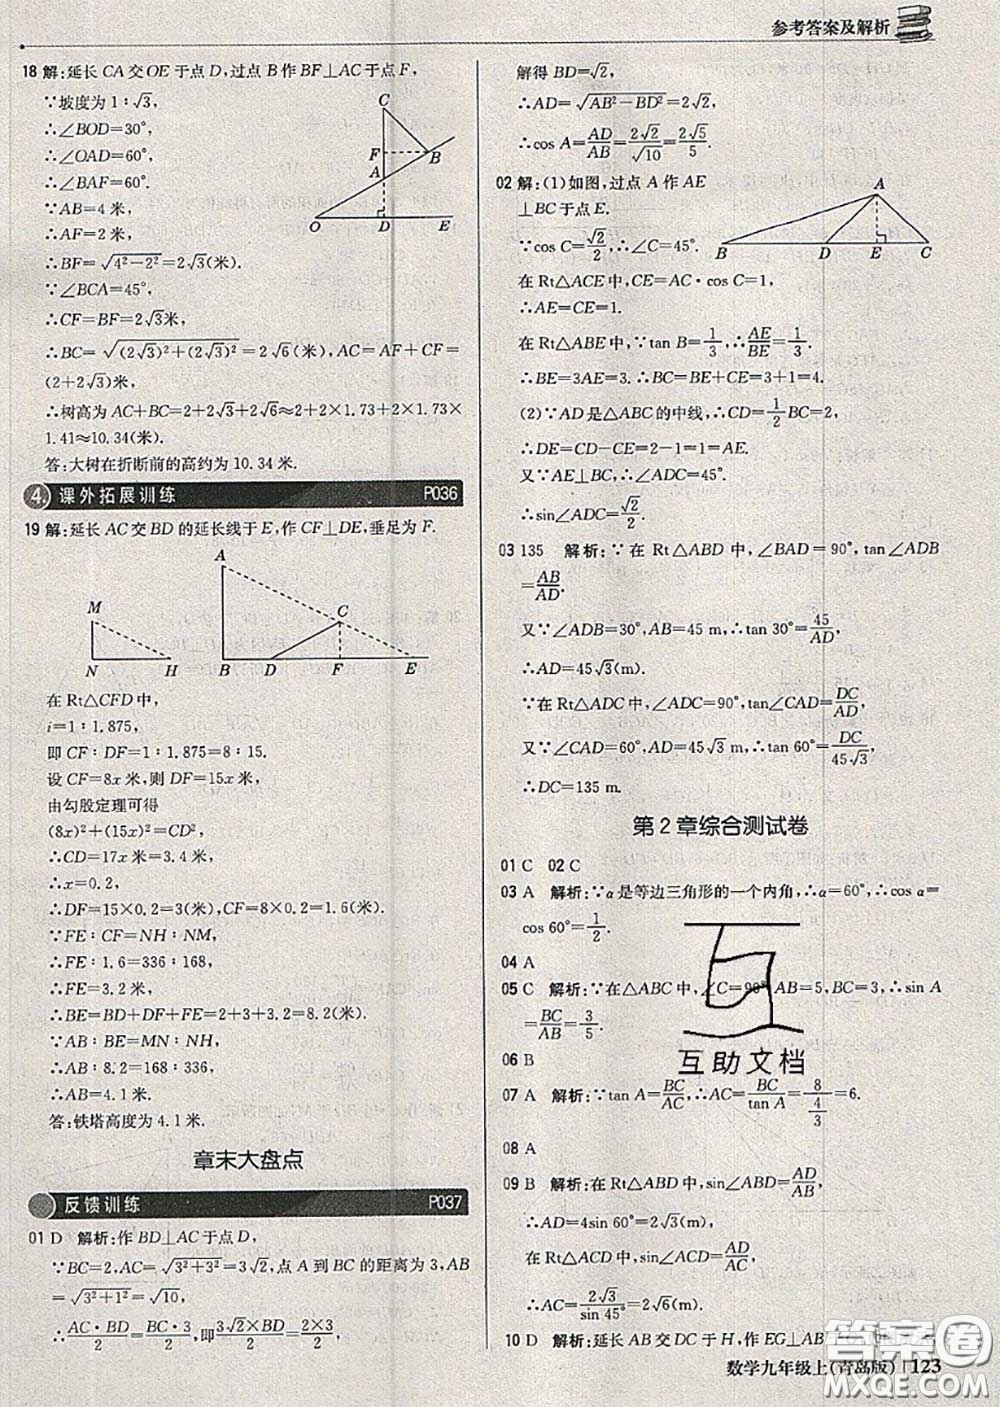 参考答案及解析
18 解:延长 CA 交 OE 于点 D,过点 B 作 BF⊥AC 于点 F,
∵坡度为 1∶√3,
∴∠BOD=30°,
∴∠OAD=60°,
∴∠BAF=60°.
∵AB=4 米,
∴AF=2 米,
∴BF=√(4²-2²)=2√3(米).
∵∠BCA=45°,
∴CF=BF=2√3米,
∴BC=√((2√3)²+(2√3)²)=2√6(米),AC=AF+CF=
(2+2√3)米,
∴树高为 AC+BC=2+2√3+2√6≈2+2×1.73+2×1.73×
1.41≈10.34(米).
答:大树在折断前的高约为 10.34 米.
C
F
B
A
O
D
E
4. 课外拓展训练 P036
19 解:延长 AC 交 BD 的延长线于 E,作 CF⊥DE,垂足为 F.
A
M
C
N
H
B
D
F
E
在 Rt△CFD 中,
i=1∶1.875,
即 CF∶DF=1∶1.875=8∶15.
设 CF=8x 米,则 DF=15x 米,
由勾股定理可得
(8x)²+(15x)²=CD²,
∴CD=17x 米=3.4 米,
∴x=0.2,
∴DF=15×0.2=3(米),CF=8×0.2=1.6(米).
∵FE∶CF=NH∶NM,
∴FE∶1.6=336∶168,
∴FE=3.2 米,
∴BE=BD+DF+FE=2+3+3.2=8.2(米).
∵AB∶BE=MN∶NH,
∴AB∶8.2=168∶336,
∴AB=4.1 米.
答:铁塔高度为 4.1 米.
章末大盘点
反馈训练 P037
01 D 解析:作 BD⊥AC 于点 D,
∵BC=2,AC=√(3²+3²)=3√2,点 A 到 BC 的距离为 3,AB
=√(3²+1²)=√10,
∴AC·BD/2=BC·3/2,即3√2×BD/2=2×3/2,
解得 BD=√2,
∴AD=√(AB²-BD²)=2√2,
∴cos A=AD/AB=2√2/√10=2√5/5.
02 解:(1)如图,过点 A 作 AE
⊥BC于点 E.
∵cos C=√2/2,∴∠C=45°.
在 Rt△ACE 中,CE=AC·cos C=1,
∴AE=CE=1.
在 Rt△ABE 中,∵tan B=1/3,∴AE/BE=1/3,
∴BE=3AE=3.∴BC=BE+CE=3+1=4.
(2)∵AD 是△ABC 的中线,∴CD=1/2BC=2,
∴DE=CD-CE=2-1=1=AE.
又∵AE⊥BC,∴∠ADC=45°,
∴sin∠ADC=√2/2.
A
B
D
E
C
03 135 解析:∵在 Rt△ABD 中,∠BAD=90°,tan∠ADB
=AB/AD.
又∵∠ADB=30°,AB=45 m,∴tan 30°=45/AD,
∴AD=45√3(m).
∵在 Rt△ADC 中,∠ADC=90°,tan∠CAD=DC/AD,
又∵∠CAD=60°,AD=45√3 m,∴tan 60°=DC/45√3,
∴DC=135 m.
第 2 章综合测试卷
01 C 02 C
03 A 解析:∵α是等边三角形的一个内角,∴α=60°,∴cos α=
cos 60°=1/2.
04 A
05 C 解析:∵在△ABC 中,∠C=90°,AB=5,BC=3,∴sin A
=BC/AB=3/5.
06 B
07 A 解析:∵tan A=BC/AC,∴AC=BC/tan A=8/(4/3)=6.
08 A
09 B 解析:在 Rt△ABD 中,sin B=AD/AB,
∴AD=4sin 60°=2√3,
在 Rt△ACD 中,sin C=AD/AC,
∴AC=2√3/sin 45°=2√6(m).
10 D 解析:延长 AB 交 DC 于 H,作 EG⊥AB
互助文档
数学九年级上(青岛版) 123
答案圈
MXQE.COM